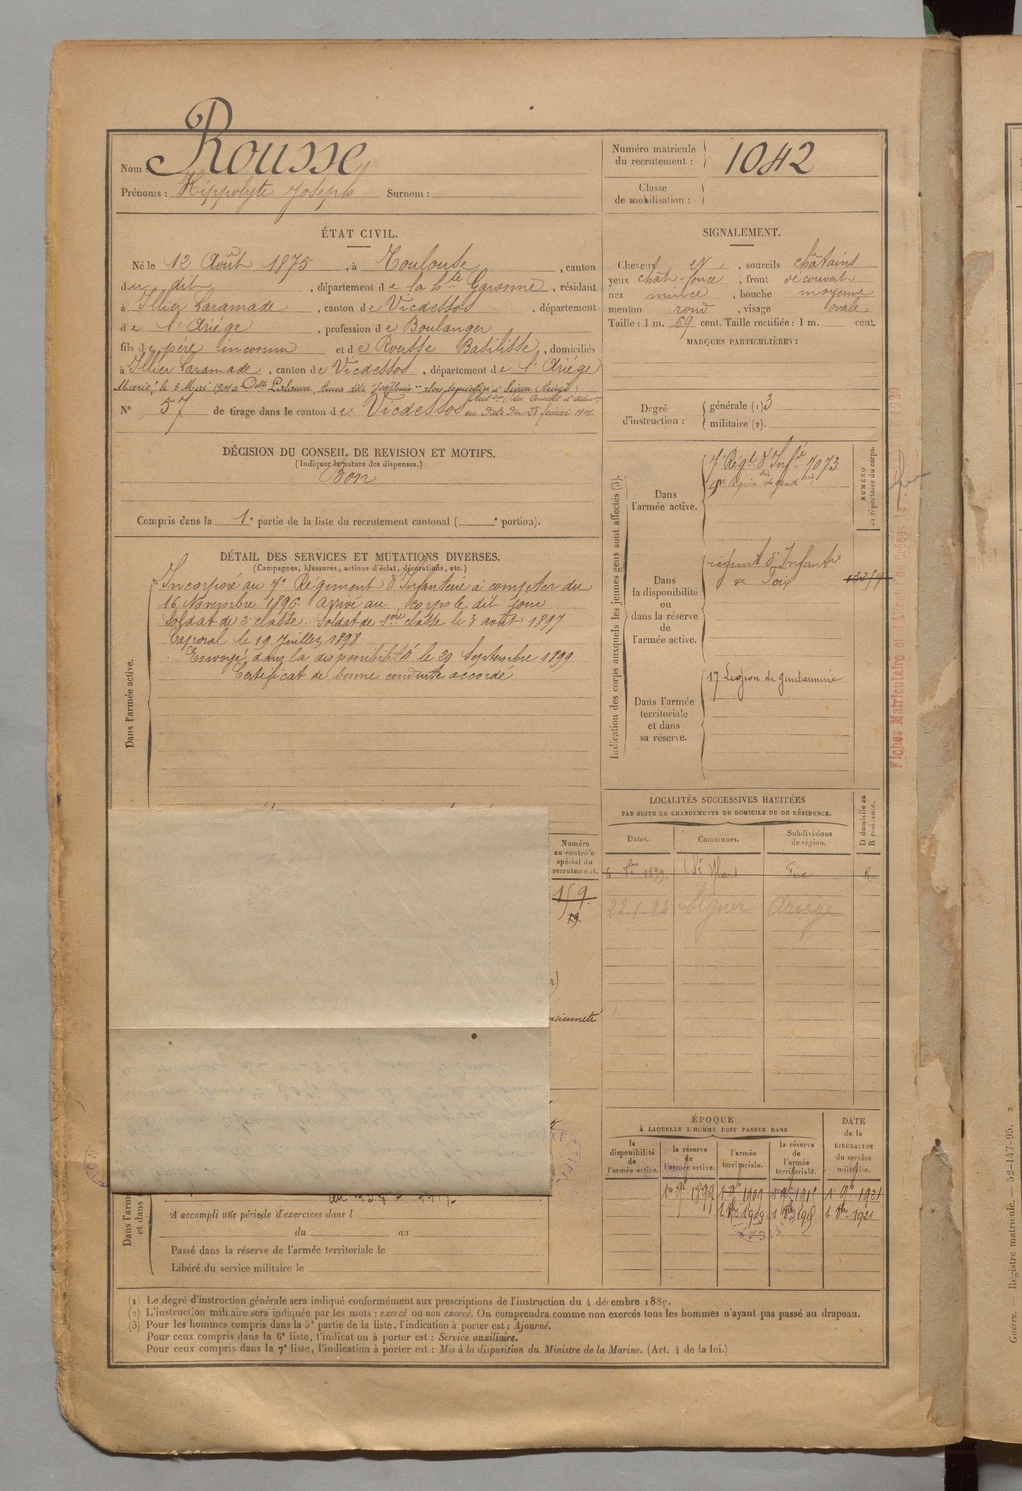 Nom Rousse
Prénoms : Hippolyte Joseph Surnom :
Numéro matricule du recrutement : 1042
Classe de mobilisation :
ÉTAT CIVIL.
Né le 12 Août 1875, à Toulouse, canton
du dit, département de la hte Garonne, résidant
à Illier Laramade, canton de Vicdessos, département
de l'Ariège, profession de Boulanger
fils de père inconnu et de Rousse Basilisse, domiciliés
à Illier Laramade, canton de Vicdessos, département de l'Ariège
Marié, le 3 Mai
N° 57 de tirage dans le canton de Vicdessos
SIGNALEMENT.
Cheveux et, sourcils châtains
yeux chât-foncé, front découvert
nez mince, bouche moyenne
menton rond, visage ovale
Taille : 1 m. 69 cent. Taille rectifiée : 1 m. cent.
MARQUES PARTICULIÈRES :
Degré d'instruction : générale (1) 3
militaire (2).
DÉCISION DU CONSEIL DE REVISION ET MOTIFS.
(Indiquer la nature des dispenses.)
Bon
Compris dans la 1e partie de la liste du recrutement cantonal ( e portion).
DÉTAIL DES SERVICES ET MUTATIONS DIVERSES.
(Campagnes, blessures, actions d'éclat, décorations, etc.)
Dans l'armée active.
Incorporé au 7e Régiment d'Infanterie à compter du
16 Novembre 1896. Arrivé au corps le dit jour
Soldat de 2e classe. Soldat de 1ère classe le 3 août 1897
Caporal le 19 Juillet 1898
Envoyé dans la disponibilité le 29 Septembre 1899
Certificat de bonne conduite accordé
Indication des corps auxquels les jeunes gens sont affectés (3).
NUMÉRO au répertoire du corps.
Dans l'armée active.
7e Régt d'Infie 7073
Dans la disponibilité ou dans la réserve de l'armée active.
régiment d'Infantie
de Foix
Dans l'armée territoriale et dans sa réserve.
17 Légion de gendarmerie
LOCALITÉS SUCCESSIVES HABITÉES
PAR SUITE DE CHANGEMENTS DE DOMICILE OU DE RÉSIDENCE.
Dates. Communes. Subdivisions de région. D domicile ou R résidence.
1899 Foix R
22-1-24 Siguer Ariège
Numéro au contrôle spécial du recrutement.
159
19
ÉPOQUE
À LAQUELLE L'HOMME DOIT PASSER DANS
la disponibilité de l'armée active. la réserve de l'armée active. l'armée territoriale. la réserve de l'armée territoriale.
DATE de la LIBÉRATION du service militaire.
1899 1909 1921
1909 1921
A accompli une période d'exercices dans l
du au
Passé dans la réserve de l'armée territoriale le
Libéré du service militaire le
(1) Le degré d'instruction générale sera indiqué conformément aux prescriptions de l'instruction du 4 décembre 1889.
(2) L'instruction militaire sera indiquée par les mots : exercé ou non exercé. On comprendra comme non exercés tous les hommes n'ayant pas passé au drapeau.
(3) Pour les hommes compris dans la 5e partie de la liste, l'indication à porter est : Ajourné.
Pour ceux compris dans la 6e liste, l'indication à porter est : Service auxiliaire.
Pour ceux compris dans la 7e liste, l'indication à porter est : Mis à la disposition du Ministre de la Marine. (Art. 4 de la loi.)
Guerre. — Registre matricule. — 52-147-95. 2